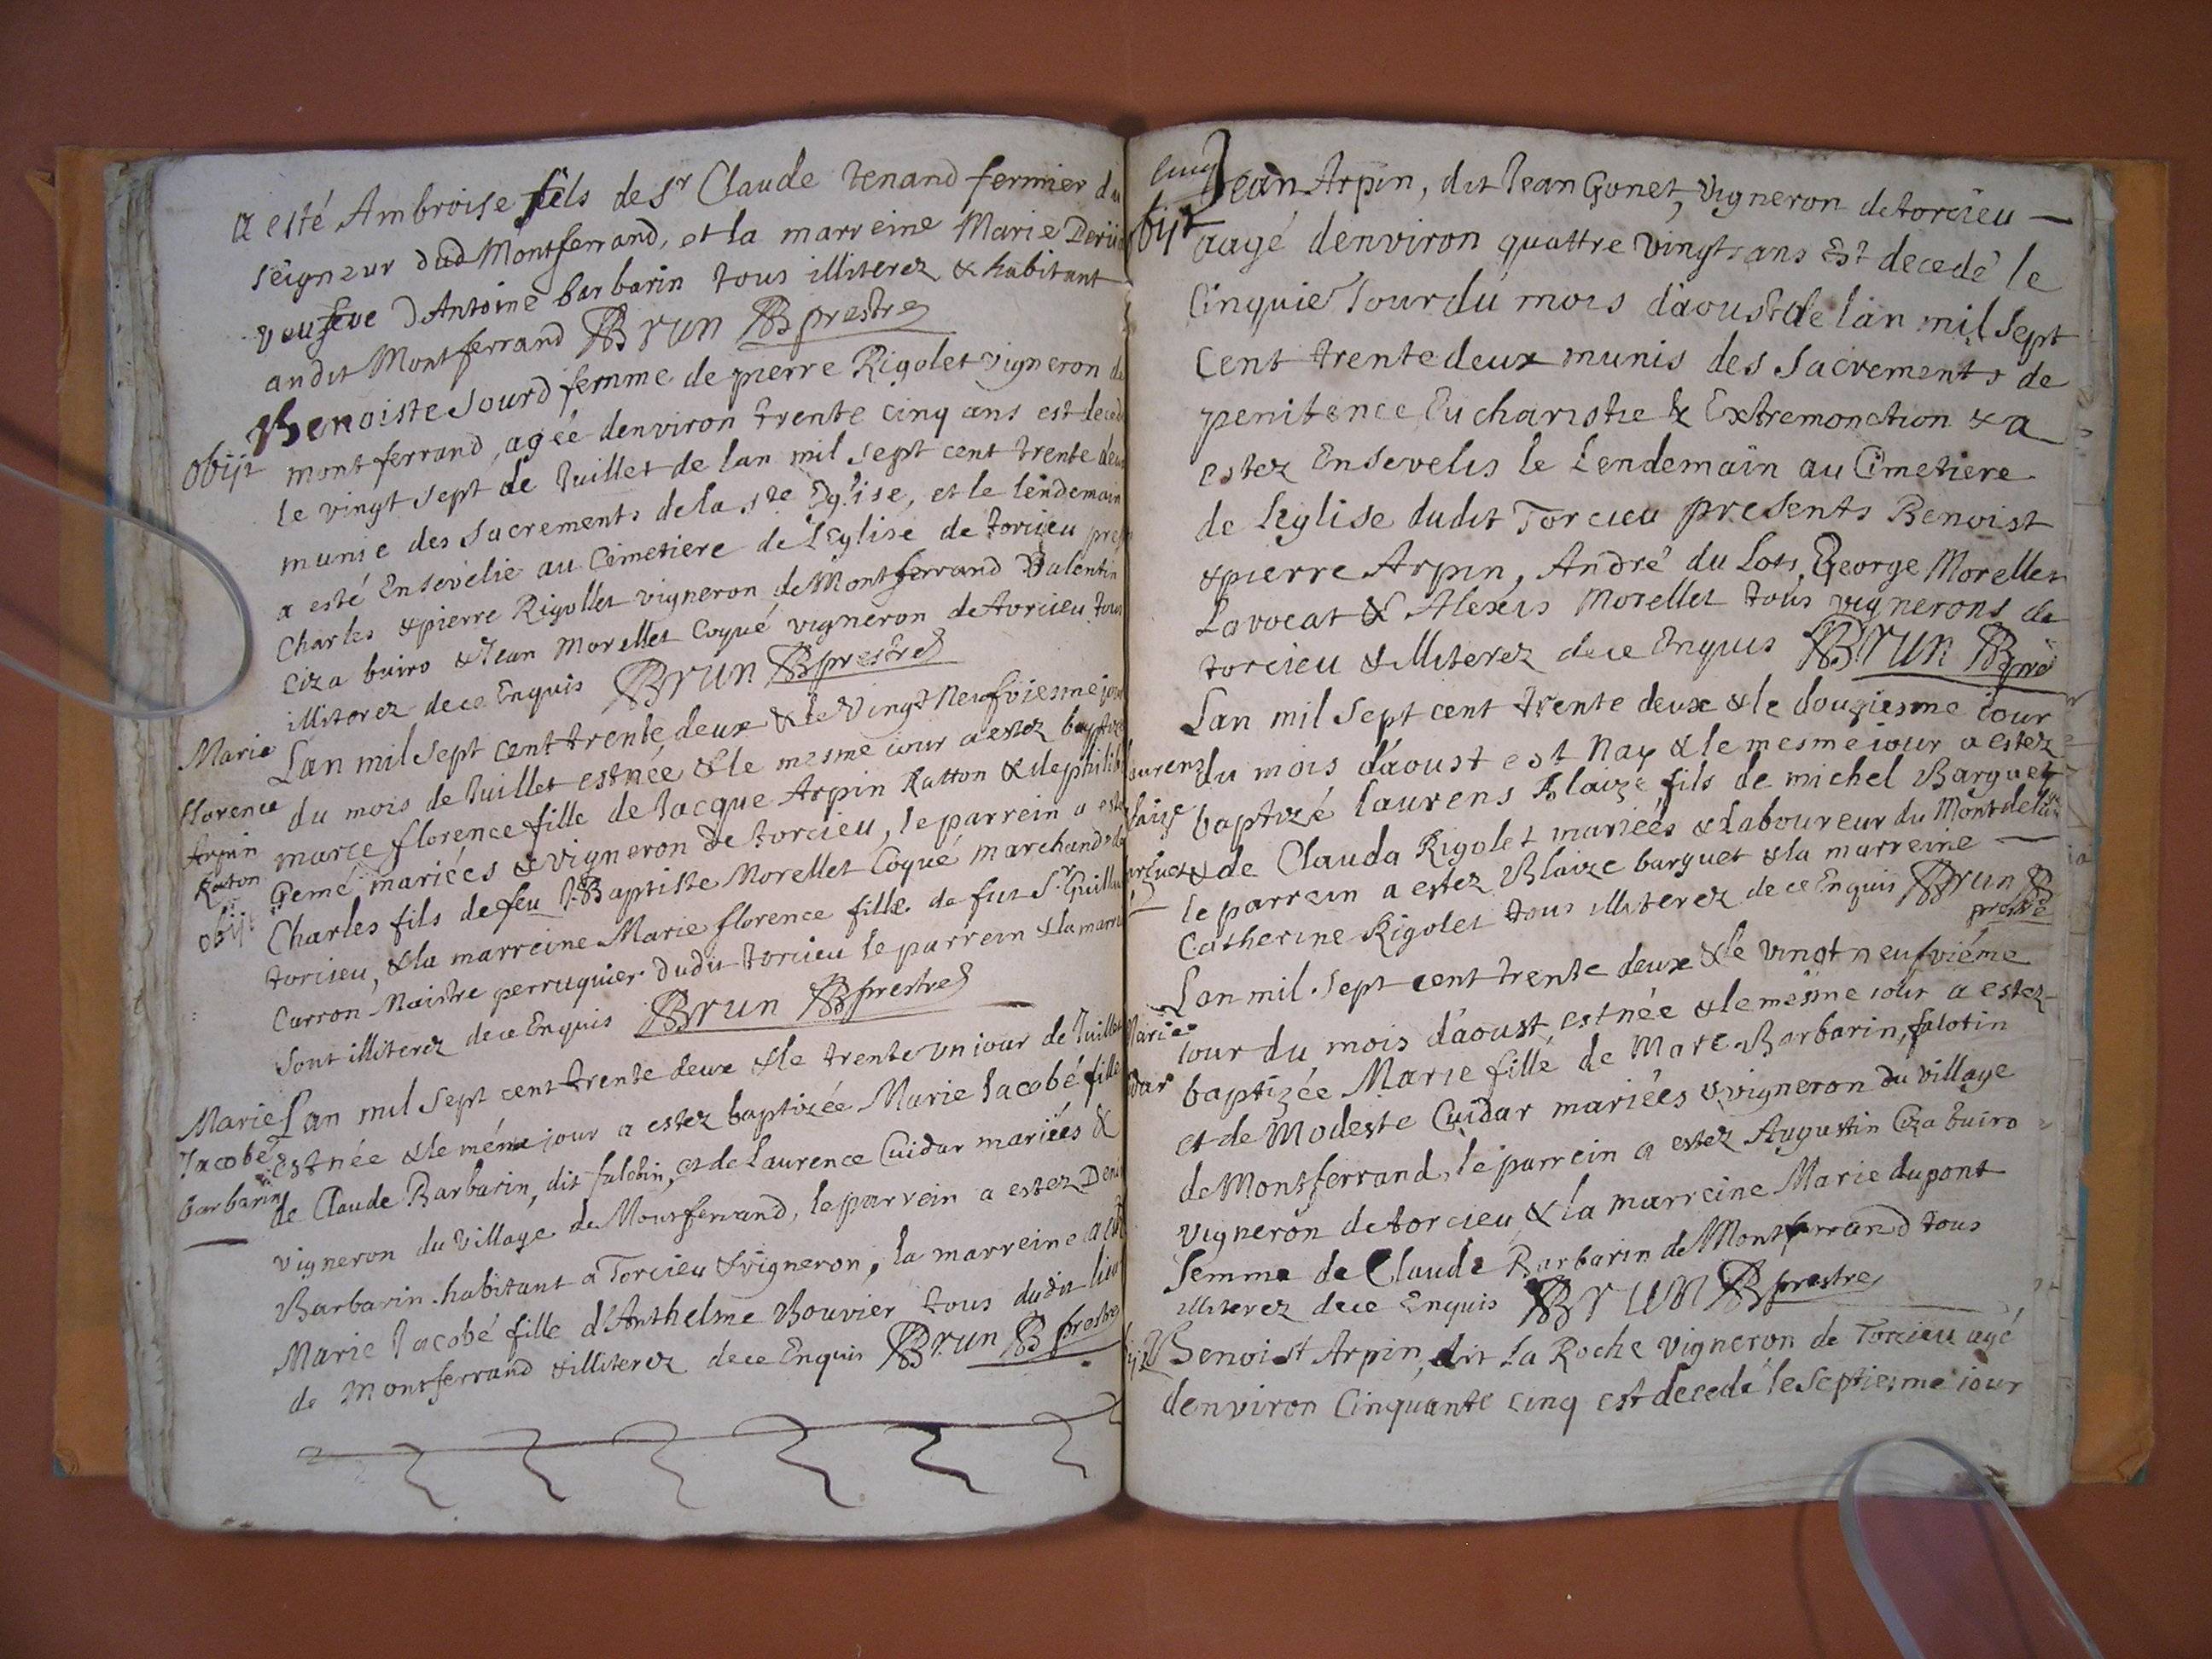 a esté Ambroise fils de Sr Claude tenand fermier du
seigneur dud Montferrand, et la marreine Marie
veufeve d'Antoine barbarin tous illiterez & habitant
audit Montferrand Brun prestre
Benoiste Sourd femme de pierre Rigolet vigneron de
obijt montferrand, agée denviron trente cinq ans est
le vingt sept de Juillet de lan mil sept cent trente deux
munie des Sacrements de la ste Eglise, et le lendemain
a esté Ensevelie au Cimetiere de l'Eglise de torcieu
Charles & pierre Rigollet vigneron de Montferrand Valentin
ciza buiro & Jean Morellet Coqué vigneron de torcieu tous
illiterez de ce Enquis Brun prestre
Marie Lan mil sept cent trente deux & le Vingt Neufviesme jour
florence du mois de Juillet est née & le mesme iour a estez
Arpin marie florence fille de Jacque Arpin Ratton &
Raton Gemé mariées & vigneron de torcieu, le parrein a esté
obijt Charles fils de feu J. Baptiste Morellet Coqué marchand
torcieu, & la marreine Marie florence fille de fut Sr
Carron Maistre perruquier dudit torcieu le parrein & la
sont illiterez de ce Enquis Brun prestre
Marie Lan mil sept cent trente deux & le trente un iour de Juillet
Jacobé est née & le méme iour a estez baptizée Marie Jacobé fille
barbarin de Claude Barbarin, dit falotin, et de Laurence Cuidar mariées &
vigneron du village de Montferrand, le parrein a estez
Barbarin habitant a Torcieu & vigneron, la marreine a
Marie Jacobé fille d'Anthelme Bouvier tous dudit lieu
de Montferrand & illiterez de ce Enquis Brun prestre
Jean Arpin, dit Jean Gonet, vigneron de torcieu
aagé denviron quattre vingts ans Est decedé le
Cinquie Jour du mois d'aoust de lan mil sept
Cent trente deux munis des Sacrements de
penitence Eucharistie & Extremonction & a
estez Ensevelis le Lendemain au Cimetiere
de leglise dudit Torcieu presents Benoist
& pierre Arpin, André du Lots, George Morellet
Lavocat & Alexis Morellet tous vignerons de
torcieu & illiterez de ce Enquis Brun
Lan mil sept cent trente deux & le douziesme iour
du mois d'aoust est Nay & le mesme iour a estez
baptizé laurens Blaize fils de michel Barguet
& de Clauda Rigolet mariées & Laboureur du
le parrein a estez Blaize barguet & la marreine
Catherine Rigolet tous illiterez de ce Enquis Brun
prestre
Lan mil sept cent trente deux & le vingt neufviéme
Marie iour du mois d'aoust est née & le mesme iour a estez
baptizée Marie fille de Marc Barbarin, falotin
et de Modeste Cuidar mariées & vigneron du village
de Montferrand, le parrein a estez Augustin Ciza buiro
vigneron de torcieu & la marreine Marie dupont
femme de Claude Barbarin de Montferrand tous
illiterez de ce Enquis Brun prestre
Benoist Arpin, dit La Roche vigneron de Torcieu agé
denviron Cinquante cinq est decedé le septiesme iour